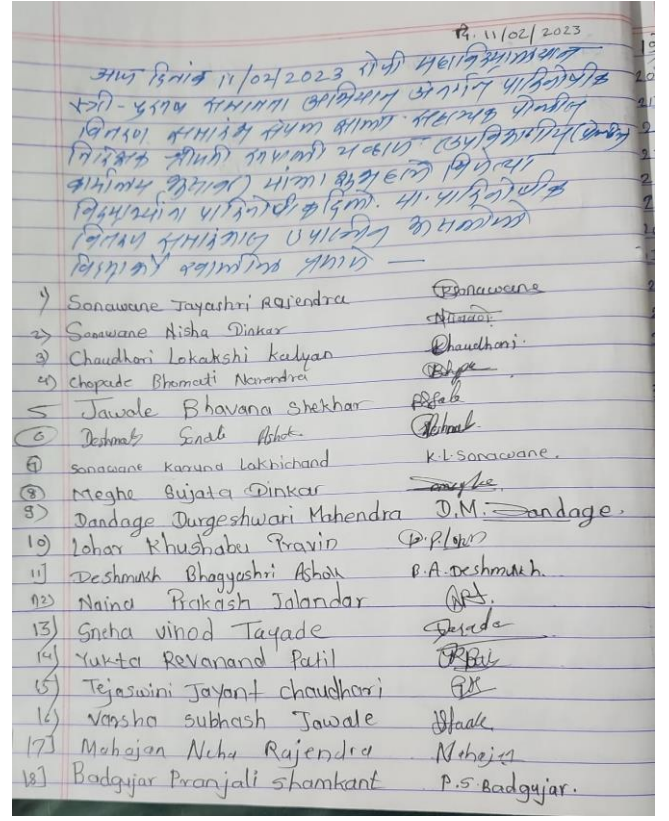 दि. 11/02/2023
आज दिनांक 11/02/2023 रोजी महाविद्यालयात
स्त्री-पुरुष समानता अभियान अंतर्गत पारितोषीक
वितरण समारंभ संपन्न झाला. सहाय्यक पोलीस
निरिक्षक श्रीमती रुपाली चव्हाण उपविभागीय
कार्यालय यांचा हस्ते विजेत्या
विद्यार्थ्यांना पारितोषीक दिली. या पारितोषीक
वितरण समारंभात उपस्थित असलेले
विद्यार्थी खालील प्रमाणे —
1) Sonawane Jayashri Rajendra Rsonawane
2) Sonawane Nisha Dinkar
3) Chaudhari Lokakshi Kalyan Chaudhari.
4) Chopade Bhomati Narendra
5 Jawale Bhavana Shekhar
6 Deshmukh Sonali Ashok.
7 Sonawane Karuna Lakhichand K.L.Sonawane.
8 Meghe Sujata Dinkar
9) Dandage Durgeshwari Mahendra D.M. Dandage.
10) Lohar Khushabu Pravin P.P.Lohar
11] Deshmukh Bhagyashri Ashok B.A.Deshmukh.
12) Naina Prakash Jalandar
13) Sneha vinod Tayade
14) Yukta Revanand Patil
15) Tejaswini Jayant chaudhari
16) Varsha subhash Jawale
17] Mahajan Neha Rajendra
18] Badgujar Pranjali shamkant P.S.Badgujar.